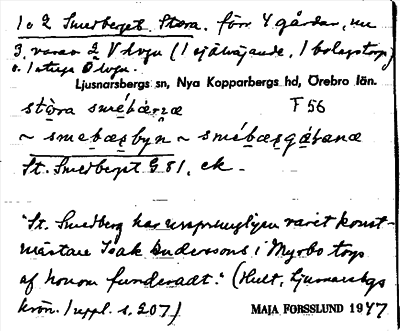 1 o 2 Smedberget Stora. förr 4 gårdar, nu
3, varav 2 V lvgn (1 själväjande, 1 bolagstorp)
o. 1 utrye Ö lvgn.
Ljusnarsbergs sn, Nya Kopparbergs hd, Örebro län.
stɷ̀ra smébæ̀rɳæ F 56
~ smebærbyn ~ smébærgáʟanæ
St. Smedberget G 81, ek.
"St. Smedberg har ursprungligen varit konst-
mästare Isak Anderssons i Myrbo torp
af honom funderadt." (Hult, Ljusnarsbgs
krön. 1 uppl. s. 207)
MAJA FORSSLUND 1947